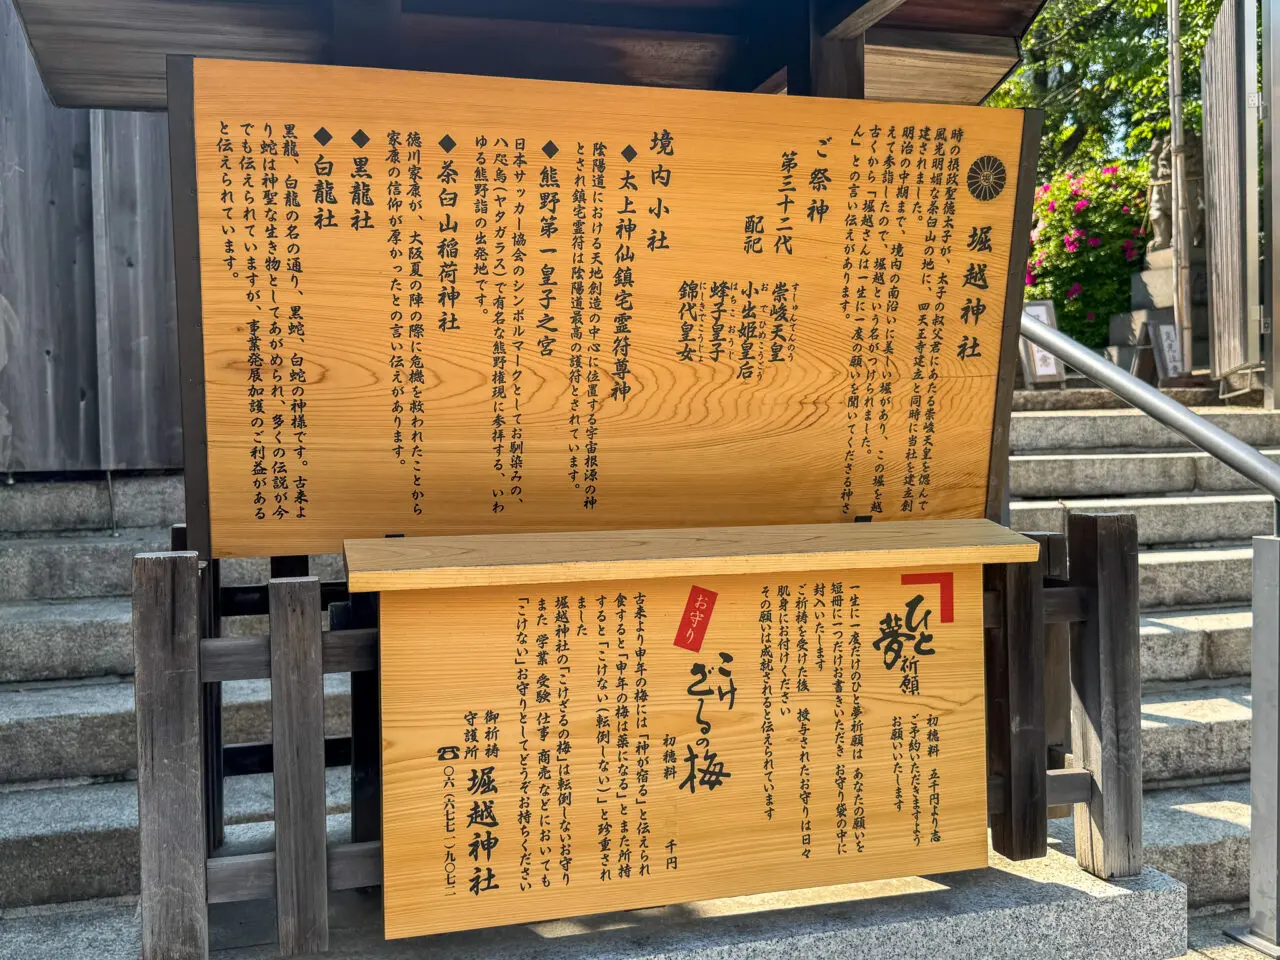 堀越神社
時の摂政聖徳太子が、太子の叔父君にあたる崇峻天皇を偲んで
風光明媚な茶臼山の地に、四天王寺建立と同時に当社を建立創
建されました。
明治の中期まで、境内の南沿いに美しい堀があり、この堀を越
えて参詣したので、堀越という名がつけられました。
古くから「堀越さんは一生に一度の願いを聞いてくださる神さ
ん」との言い伝えがあります。
ご祭神
第三十二代 崇峻天皇
すしゅんてんのう
配祀 小出姫皇后
おでひめこうごう
蜂子皇子
はちこおうじ
錦代皇女
にしきでこうじょ
境内小社
◆太上神仙鎮宅霊符尊神
陰陽道における天地創造の中心に位置する宇宙根源の神
とされ鎮宅霊符は陰陽道最高の護符とされています。
◆熊野第一皇子之宮
日本サッカー協会のシンボルマークとしてお馴染みの、
八咫烏(ヤタガラス)で有名な熊野権現に参拝する、いわ
ゆる熊野詣の出発地です。
◆茶臼山稲荷神社
徳川家康が、大阪夏の陣の際に危機を救われたことから
家康の信仰が厚かったとの言い伝えがあります。
◆黒龍社
◆白龍社
黒龍、白龍の名の通り、黒蛇、白蛇の神様です。古来よ
り蛇は神聖な生き物としてあがめられ、多くの伝説が今
でも伝えられていますが、事業発展加護のご利益がある
と伝えられています。
ひと夢祈願
初穂料 五千円より志
ご予約いただきますよう
お願いいたします
一生に一度だけのひと夢祈願は あなたの願いを
短冊に一つだけお書きいただき お守り袋の中に
封入いたします
ご祈祷を受けた後 授与されたお守りは日々
肌身にお付けください
その願いは成就されると伝えられています
お守り
こけざるの梅
初穂料 千円
古来より申年の梅には「神が宿る」と伝えられ
食すると「申年の梅は薬になる」とまた所持
すると「こけない(転倒しない)」と珍重され
ました
堀越神社の「こけざるの梅」は転倒しないお守り
また 学業 受験 仕事 商売などにおいても
「こけない」お守りとしてどうぞお持ちください
御祈祷
守護所 堀越神社
☎〇六(六七七一)九〇七二